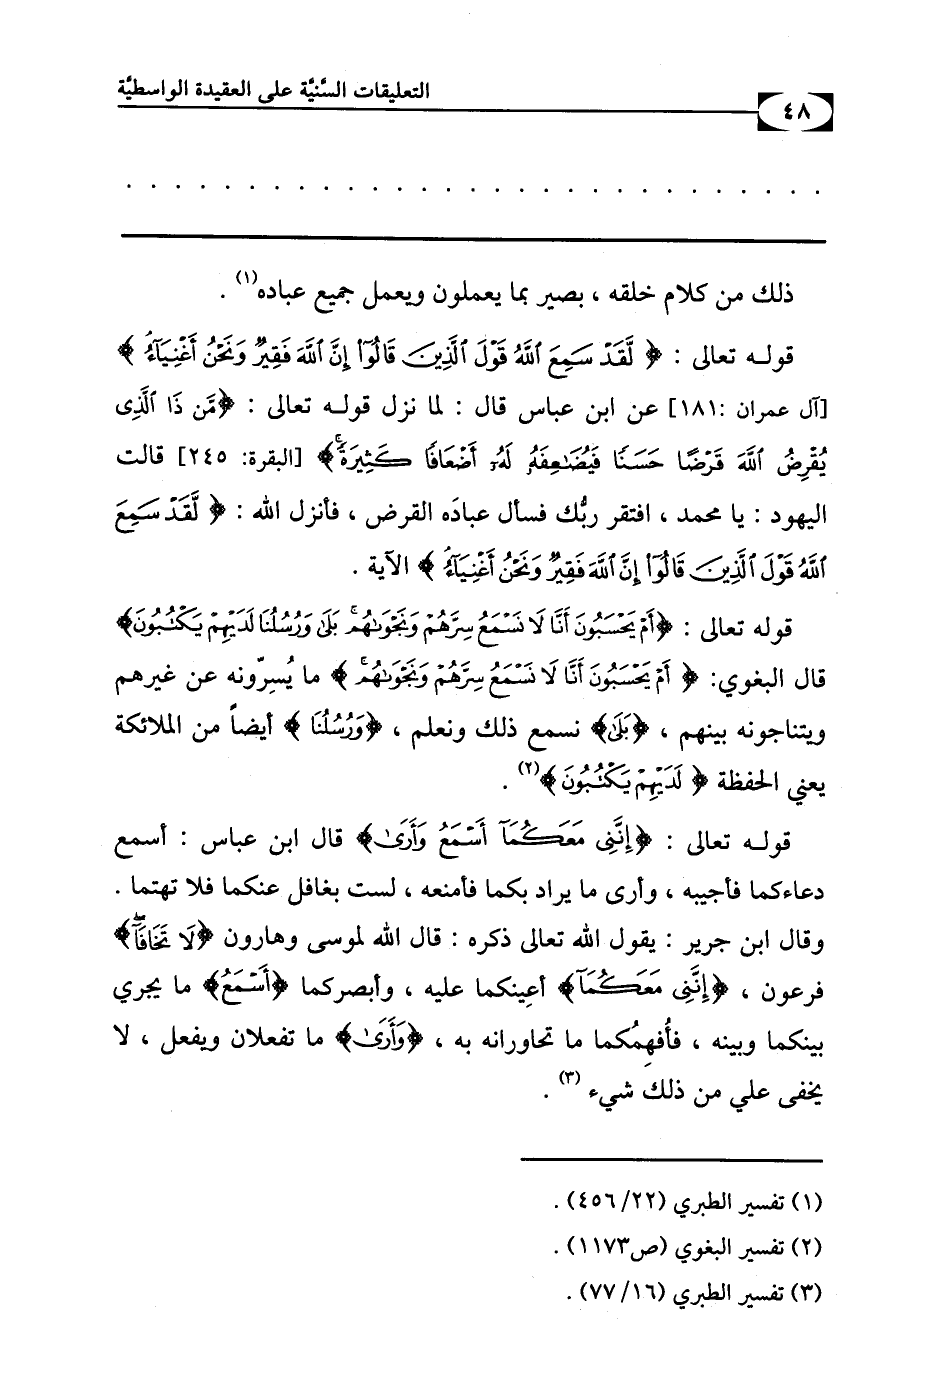 التعليقات السَّنيَّة على العقيدة الواسطيَّة
٤٨
ذلك من كلام خلقه ، بصير بما يعملون ويعمل جميع عباده(١) .
قولـه تعالى : ﴿ لَّقَدۡ سَمِعَ ٱللَّهُ قَوۡلَ ٱلَّذِينَ قَالُوٓاْ إِنَّ ٱللَّهَ فَقِيرٞ وَنَحۡنُ أَغۡنِيَآءُ ﴾
[آل عمران :١٨١] عن ابن عباس قال : لما نزل قولـه تعالى : ﴿مَّن ذَا ٱلَّذِي
يُقۡرِضُ ٱللَّهَ قَرۡضًا حَسَنٗا فَيُضَٰعِفَهُۥ لَهُۥٓ أَضۡعَافٗا كَثِيرَةٗۚ﴾ [البقرة: ٢٤٥] قالت
اليهود : يا محمد ، افتقر ربُّك فسأل عبادَه القرض ، فأنزل الله : ﴿ لَّقَدۡ سَمِعَ
ٱللَّهُ قَوۡلَ ٱلَّذِينَ قَالُوٓاْ إِنَّ ٱللَّهَ فَقِيرٞ وَنَحۡنُ أَغۡنِيَآءُ ﴾ الآية .
قوله تعالى : ﴿أَمۡ يَحۡسَبُونَ أَنَّا لَا نَسۡمَعُ سِرَّهُمۡ وَنَجۡوَىٰهُمۚ بَلَىٰ وَرُسُلُنَا لَدَيۡهِمۡ يَكۡتُبُونَ﴾
قال البغوي: ﴿ أَمۡ يَحۡسَبُونَ أَنَّا لَا نَسۡمَعُ سِرَّهُمۡ وَنَجۡوَىٰهُمۚ ﴾ ما يُسِرّونه عن غيرهم
ويتناجونه بينهم ، ﴿بَلَىٰ﴾ نسمع ذلك ونعلم ، ﴿وَرُسُلُنَا ﴾ أيضاً من الملائكة
يعني الحفظة ﴿ لَدَيۡهِمۡ يَكۡتُبُونَ ﴾(٢) .
قولـه تعالى : ﴿إِنَّنِي مَعَكُمَآ أَسۡمَعُ وَأَرَىٰ﴾ قال ابن عباس : أسمع
دعاءكما فأجيبه ، وأرى ما يراد بكما فأمنعه ، لست بغافل عنكما فلا تهتما .
وقال ابن جرير : يقول الله تعالى ذكره : قال الله لموسى وهارون ﴿لَا تَخَافَآۖ﴾
فرعون ، ﴿إِنَّنِي مَعَكُمَآ﴾ أعينكما عليه ، وأبصركما ﴿أَسۡمَعُ﴾ ما يجري
بينكما وبينه ، فأُفهِمُكما ما تحاورانه به ، ﴿وَأَرَىٰ﴾ ما تفعلان ويفعل ، لا
يخفى علي من ذلك شيء (٣) .
(١) تفسير الطبري (٢٢/ ٤٥٦) .
(٢) تفسير البغوي (ص١١٧٣) .
(٣) تفسير الطبري (١٦/ ٧٧) .